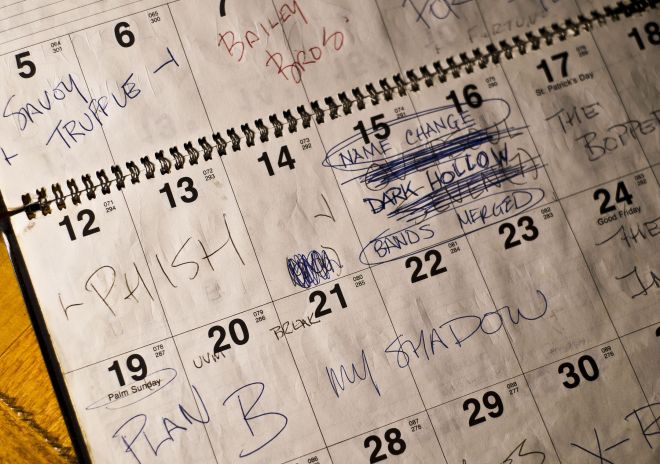 5 064 301
6 065 300
7
SAVOY TRUFFLE
BAILEY
BROS.
12 071 294
13 072 293
14 073 292
15 074 291
16 075 290
17
St. Patrick's Day
18
PHISH
NAME CHANGE
DARK HOLLOW
BANDS MERGED
THE
19 078 287
Palm Sunday
20 079 286
21 080 285
22 081 284
23 082 283
24
Good Friday
UVM
BREAK
PLAN B
MY SHADOW
THE
28 087 278
29 088 277
30 089 276
X-R